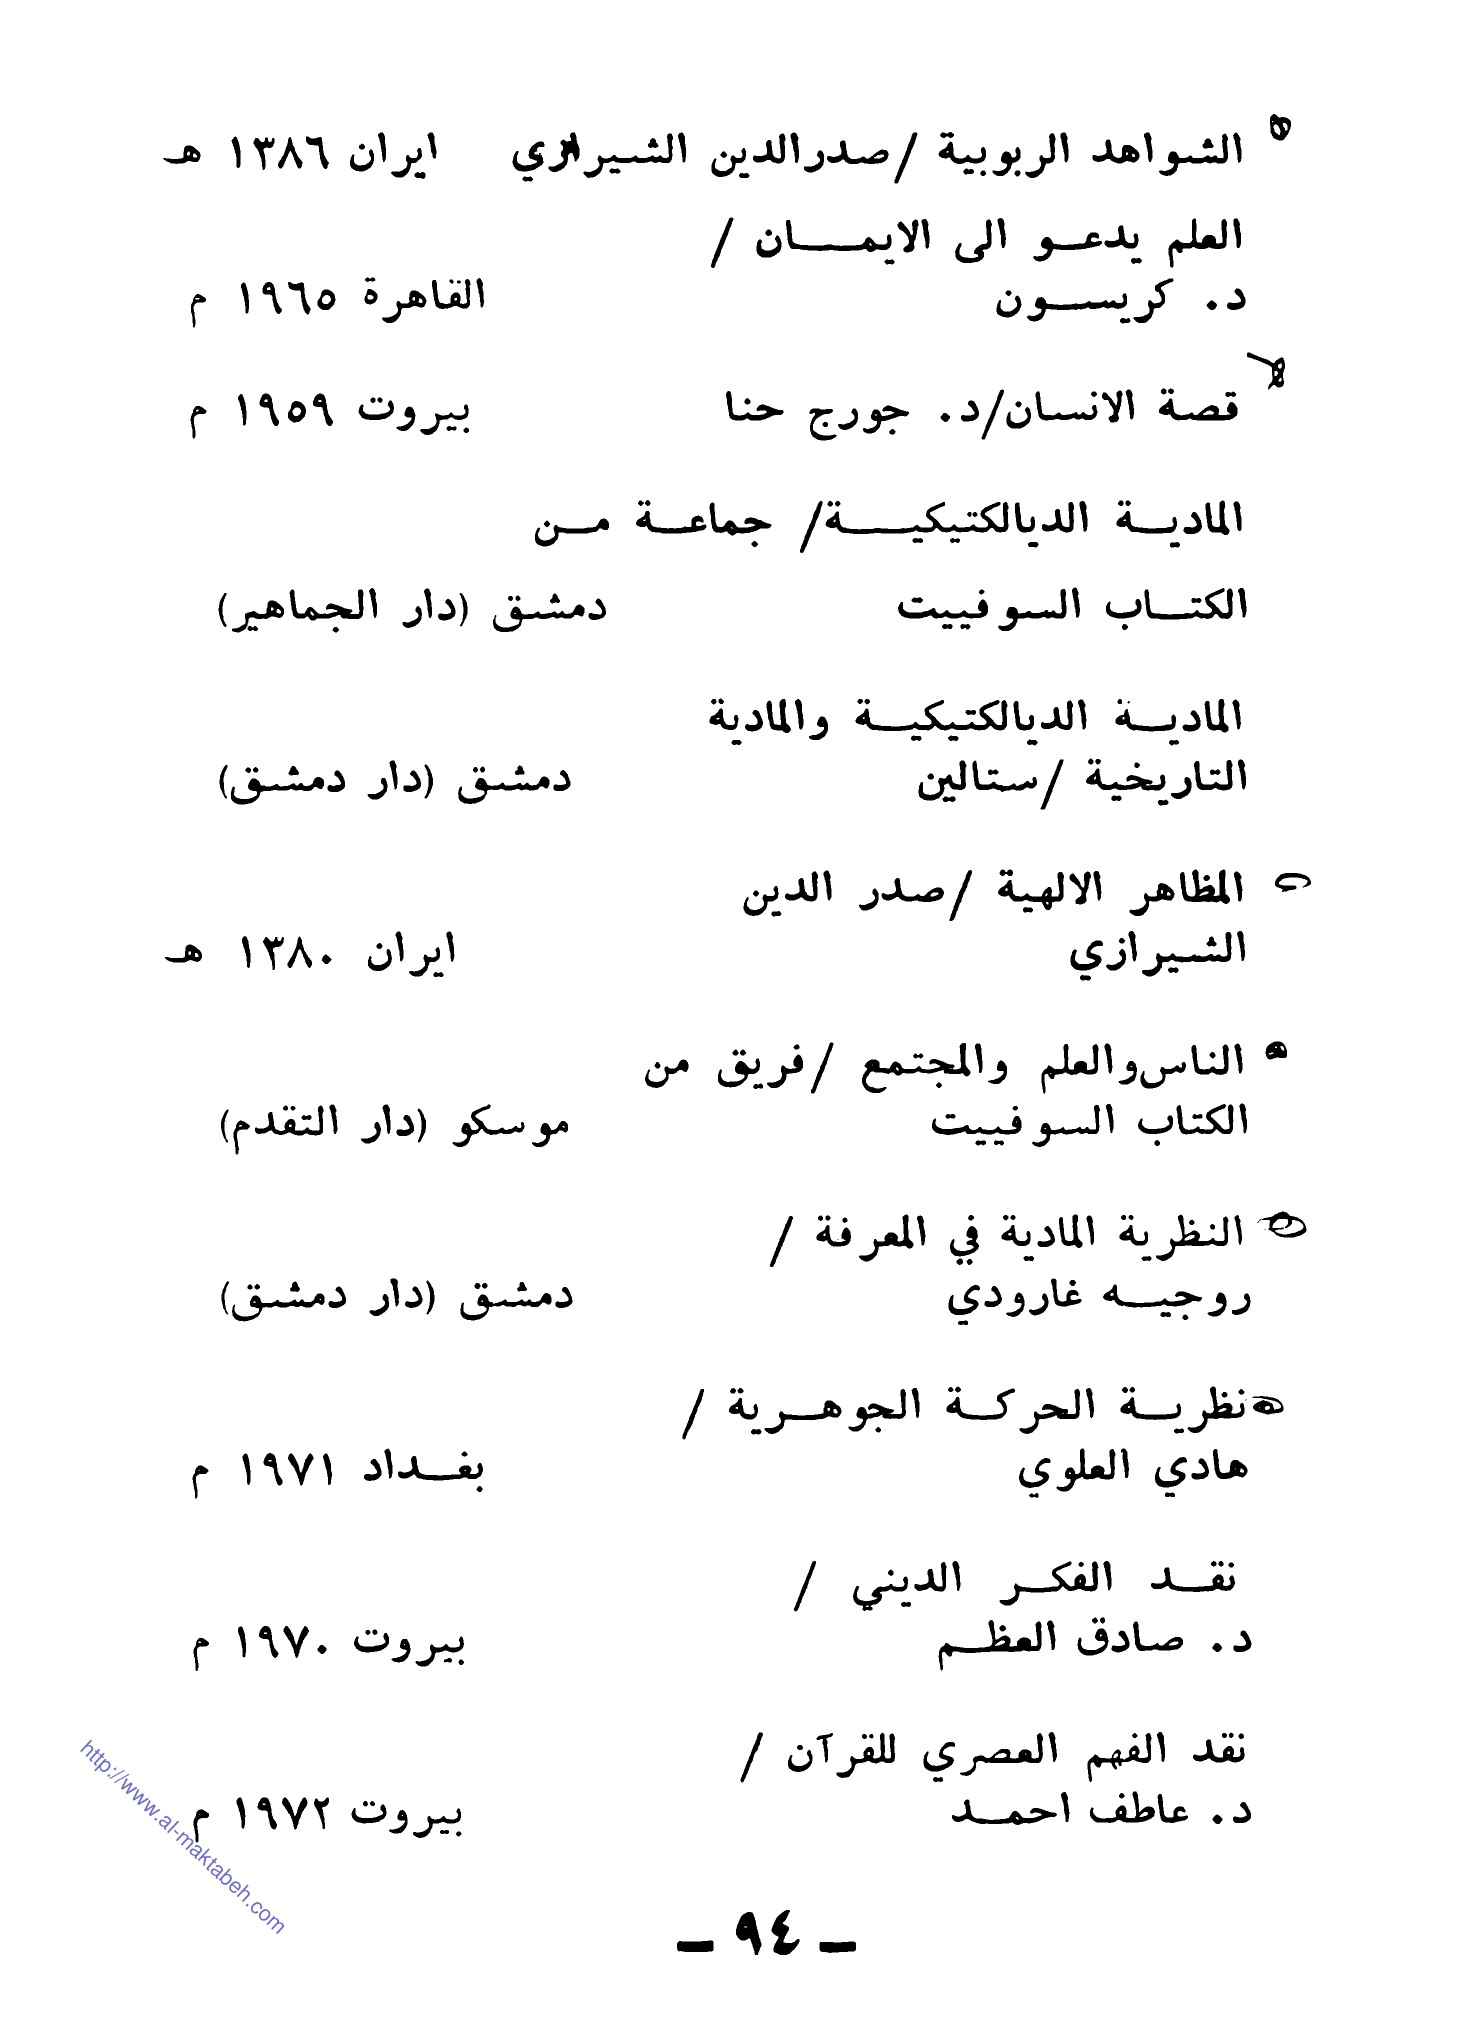 الشواهد الربوبية /صدرالدين الشيرازي ايران ١٣٨٦ هـ
العلم يدعـو الى الايمـــان /
د. كريســون القاهرة ١٩٦٥ م
قصة الانسان/د. جورج حنا بيروت ١٩٥٩ م
الماديـة الديالكتيكيـــة/ جماعـة مـن
الكتـاب السوفييت دمشق (دار الجماهير)
الماديـة الديالكتيكيـة والمادية
التاريخية /ستالين دمشق (دار دمشق)
المظاهر الالهية /صدر الدين
الشيرازي ايران ١٣٨٠ هـ
الناس والعلم والمجتمع /فريق من
الكتاب السوفييت موسكو (دار التقدم)
النظرية المادية في المعرفة /
روجيـه غارودي دمشق (دار دمشق)
نظريـة الحركـة الجوهـرية /
هادي العلوي بغـداد ١٩٧١ م
نقـد الفكـر الديني /
د. صادق العظـم بيروت ١٩٧٠ م
نقد الفهم العصري للقرآن /
د. عاطف احمـد بيروت ١٩٧٢ م
http://www.al-maktabeh.com
ـ ٩٤ ـ